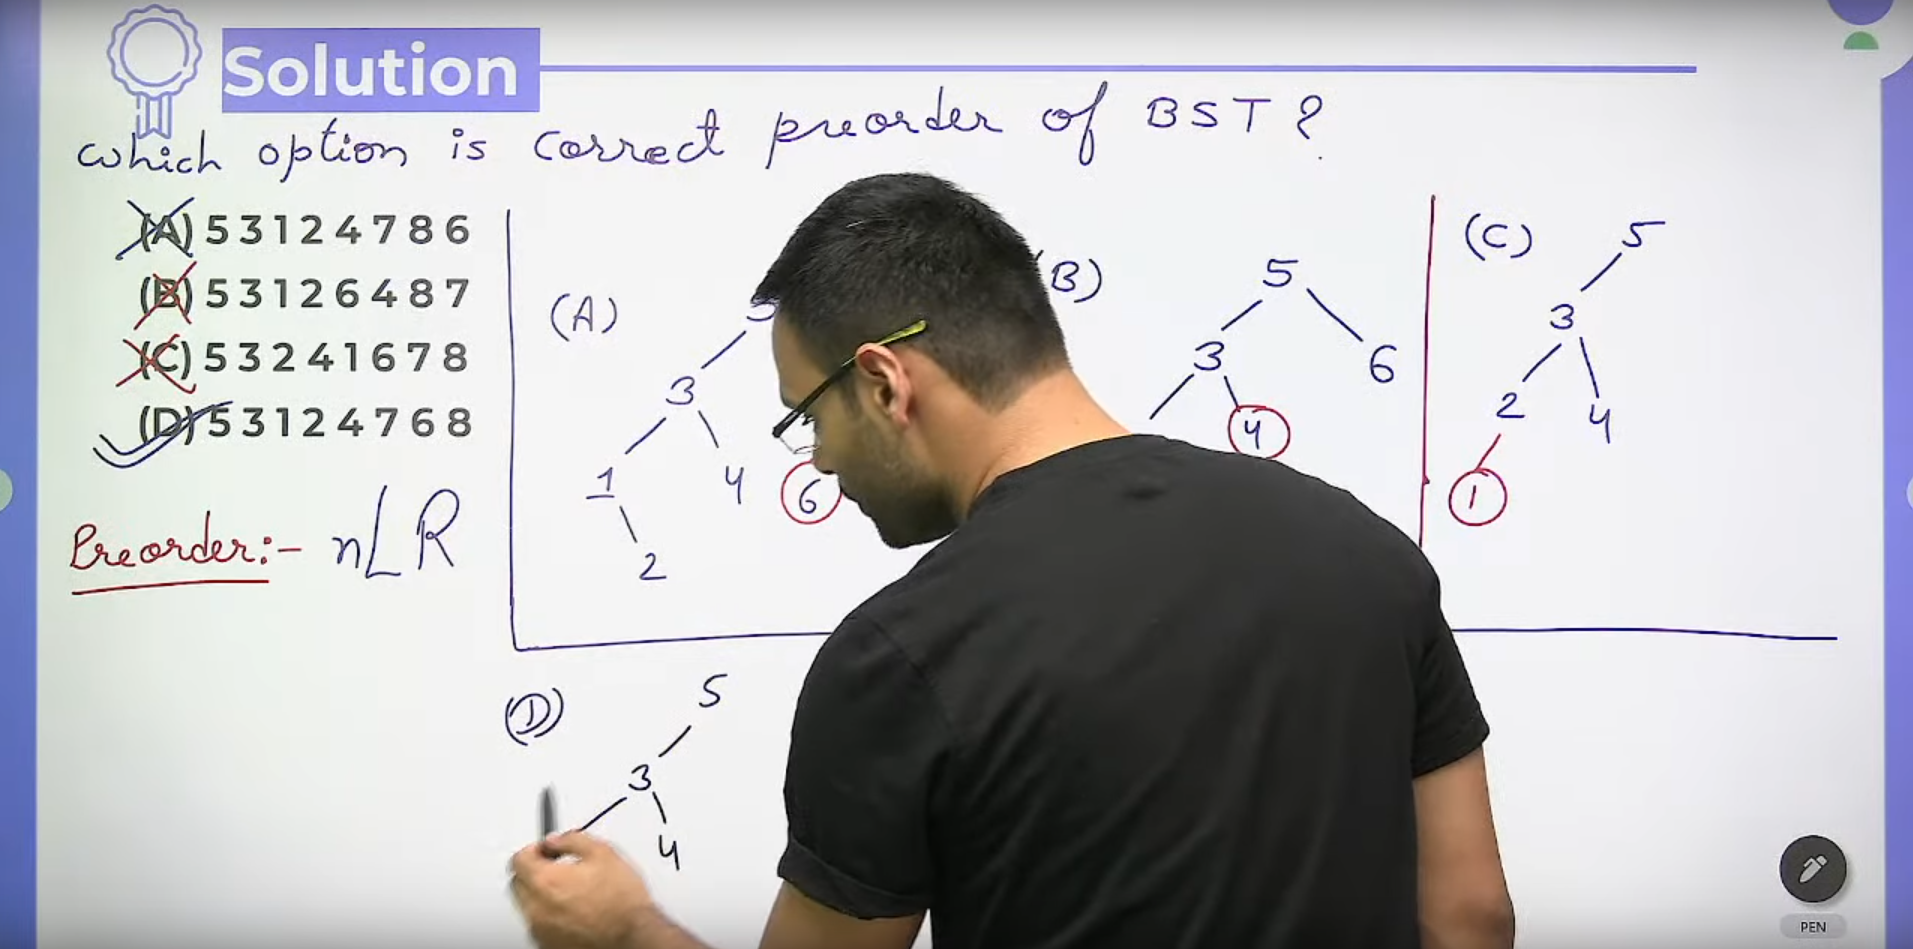 Solution
which option is correct preorder of BST?
(A) 5 3 1 2 4 7 8 6
(B) 5 3 1 2 6 4 8 7
(C) 5 3 2 4 1 6 7 8
(D) 5 3 1 2 4 7 6 8
Preorder:- nLR
(A)
3
1
4
6
2
(B)
5
3
6
4
(C)
5
3
2
4
1
(D)
5
3
4
PEN